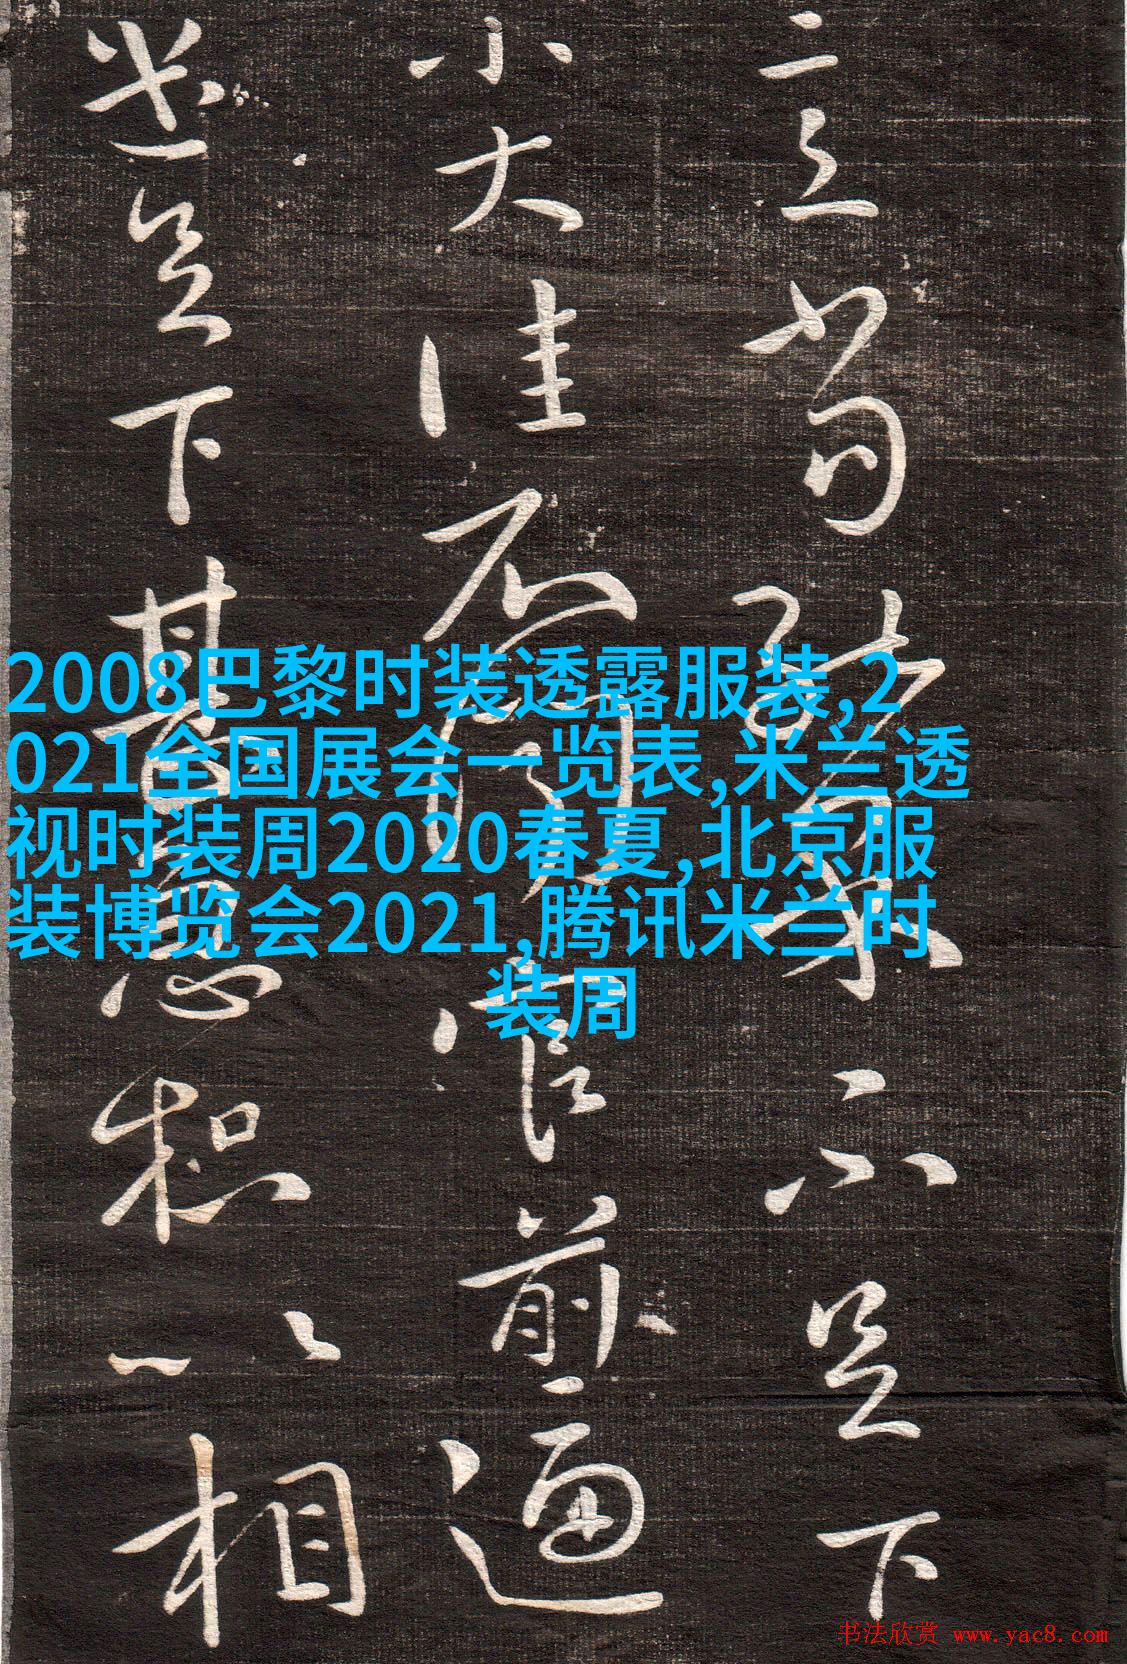 2008巴黎时装透露服装,2
021全国展会一览表,米兰透
视时装周2020春夏,北京服
装博览会2021,腾讯米兰时
装周
不足下
小大佳
前逼
足下甚思想
相
书法欣赏 www.yac8.com